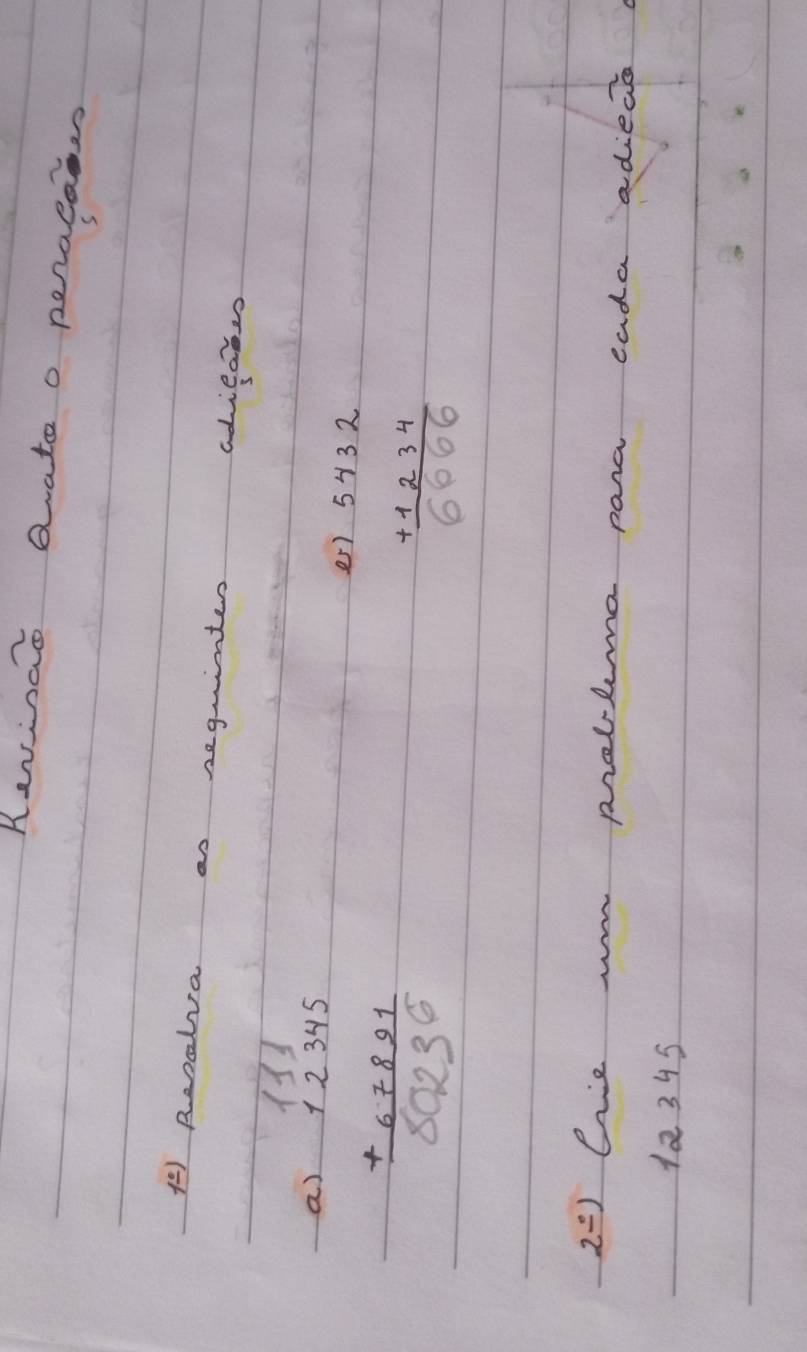 Revisão Quato operações
1º) Resolva as seguintes adições
111
a) 12345 b) 5432
+ 67891 +1234
80236 6666
2º) Crie um problema para cada adição.
12345